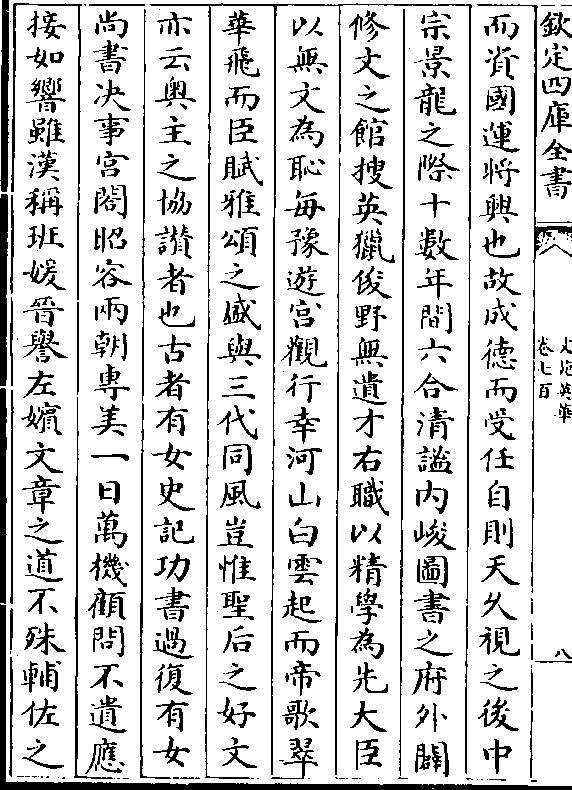 欽定四庫全書
文苑英華
卷七百
八
而資國運將興也故成德而受任自則天久視之後中
宗景龍之際十數年間六合清謐内峻圖書之府外闢
修文之館搜英獵俊野無遺才右職以精學為先大臣
以無文為恥毎豫遊宫觀行幸河山白雲起而帝歌翠
華飛而臣賦雅頌之盛與三代同風豈惟聖后之好文
亦云奥主之協讃者也古者有女史記功書過復有女
尚書决事宫閤昭容兩朝專美一日萬機顧問不遺應
接如響雖漢稱班媛晉譽左嬪文章之道不殊輔佐之